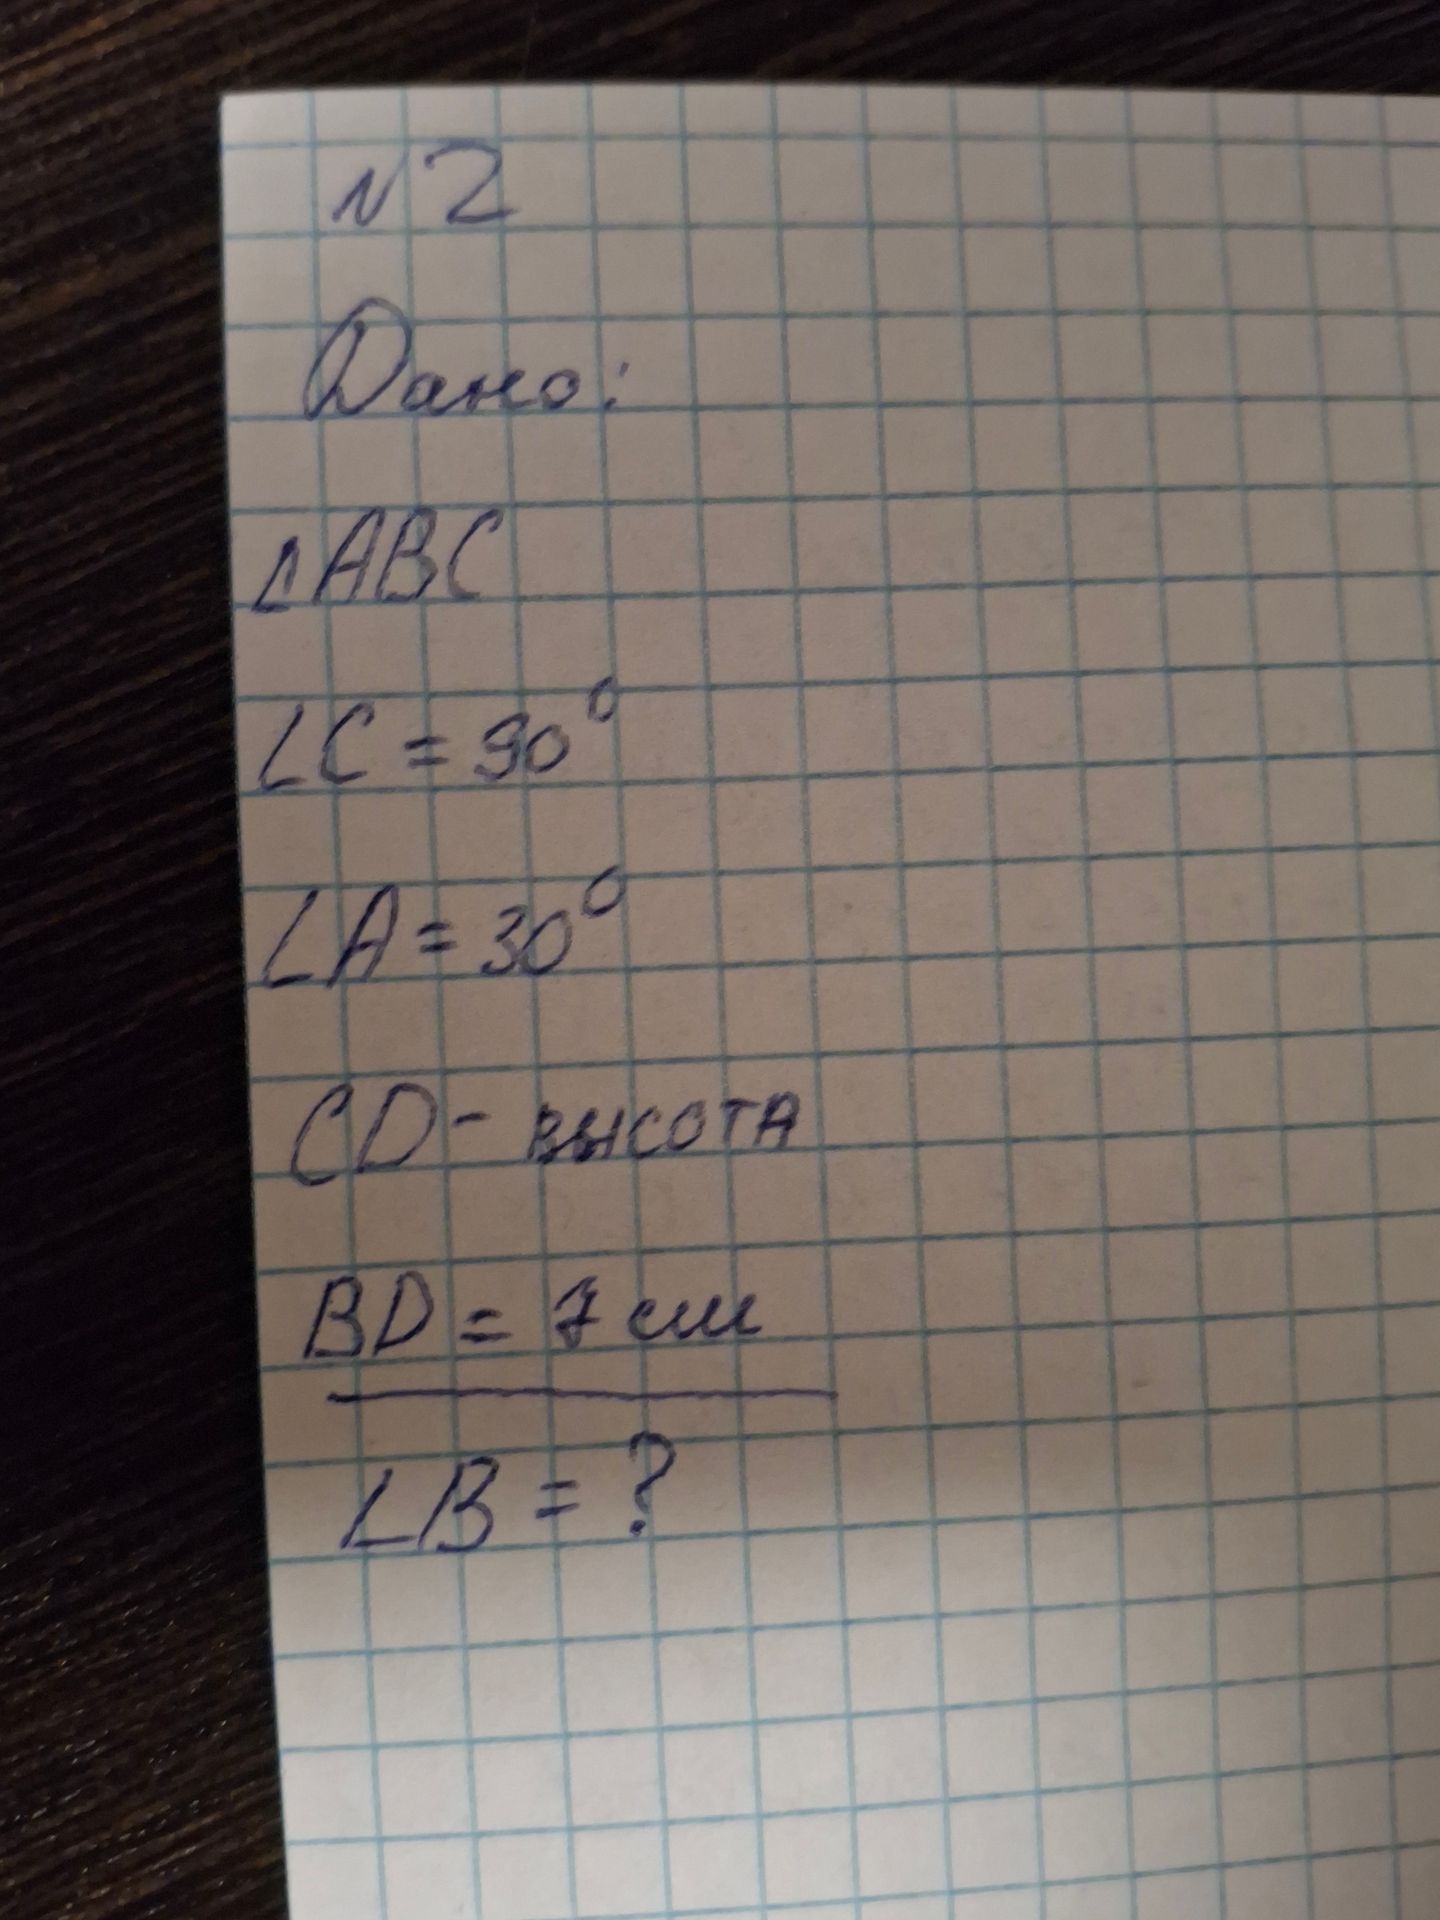 N2
Дано:
△ABC
∠C = 90°
∠A = 30°
CD - высота
BD = 7 см
∠B = ?